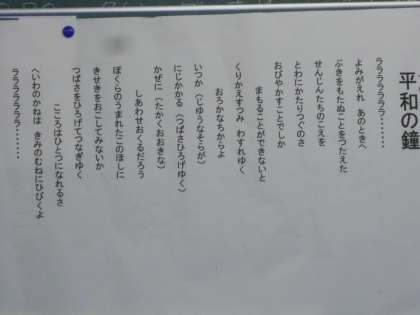 平和の鐘
ラララララララ……
よみがえれ　あのときへ
ぶきをもたぬことをつたえた
せんじんたちのこえを
とわにかたりつぐのさ
おびやかすことでしか
まもることができないと
くりかえすつみ　わすれゆく
おろかなちからよ
いつか（じゆうなそらが）
にじかかる（つばさひろげゆく）
かぜに（たかくおおきな）
しあわせおくるだろう
ぼくらのうまれたこのほしに
きせきをおこしてみないか
つばさをひろげてつなぎゆく
こころはひとつになれるさ
へいわのかねは　きみのむねにひびくよ
ラララララララ……